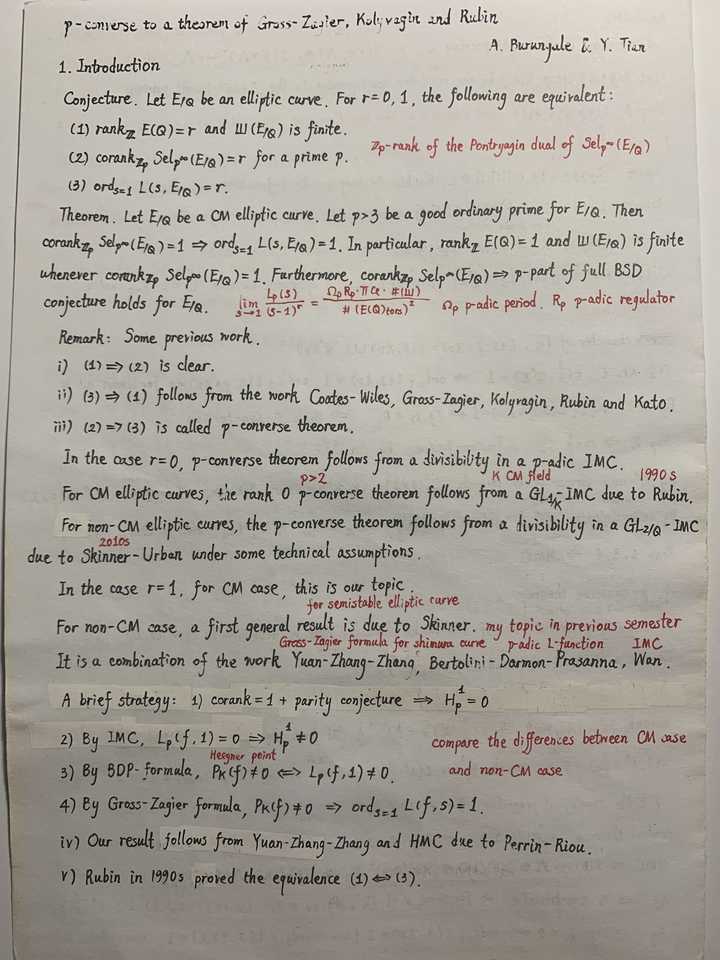 p-converse to a theorem of Gross-Zagier, Kolyvagin and Rubin
A. Burungale & Y. Tian
1. Introduction
Conjecture. Let E/Q be an elliptic curve. For r=0,1, the following are equivalent:
(1) rank_Z E(Q)=r and Ш(E/Q) is finite.
(2) corank_Zp Sel_p∞(E/Q)=r for a prime p. Zp-rank of the Pontryagin dual of Sel_p∞(E/Q)
(3) ord_{s=1} L(s, E/Q)=r.
Theorem. Let E/Q be a CM elliptic curve. Let p>3 be a good ordinary prime for E/Q. Then
corank_Zp Sel_p∞(E/Q)=1 ⇒ ord_{s=1} L(s, E/Q)=1. In particular, rank_Z E(Q)=1 and Ш(E/Q) is finite
whenever corank_Zp Sel_p∞(E/Q)=1. Furthermore, corank_Zp Sel_p∞(E/Q) ⇒ p-part of full BSD
conjecture holds for E/Q. lim_{s→1} Lp(s)/(s-1)^r = Ωp Rp·πCℓ·#(Ш)/#(E(Q)tors)^2 Ωp p-adic period. Rp p-adic regulator
Remark: Some previous work.
i) (1) ⇒ (2) is clear.
ii) (3) ⇒ (1) follows from the work Coates-Wiles, Gross-Zagier, Kolyvagin, Rubin and Kato.
iii) (2) ⇒ (3) is called p-converse theorem.
In the case r=0, p-converse theorem follows from a divisibility in a p-adic IMC.
p>2 K CM field 1990s
For CM elliptic curves, the rank 0 p-converse theorem follows from a GL1/K-IMC due to Rubin.
For non-CM elliptic curves, the p-converse theorem follows from a divisibility in a GL2/Q-IMC
2010s
due to Skinner-Urban under some technical assumptions.
In the case r=1, for CM case, this is our topic.
for semistable elliptic curve
For non-CM case, a first general result is due to Skinner. my topic in previous semester
Gross-Zagier formula for shimura curve p-adic L-function IMC
It is a combination of the work Yuan-Zhang-Zhang, Bertolini-Darmon-Prasanna, Wan.
A brief strategy: 1) corank=1 + parity conjecture ⇒ H_p^1=0
2) By IMC, Lp(f,1)=0 ⇒ H_p^1≠0 compare the differences between CM case
Heegner point
3) By BDP-formula, PK(f)≠0 ⇔ Lp(f,1)≠0. and non-CM case
4) By Gross-Zagier formula, PK(f)≠0 ⇒ ord_{s=1} L(f,s)=1.
iv) Our result follows from Yuan-Zhang-Zhang and HMC due to Perrin-Riou.
v) Rubin in 1990s proved the equivalence (1) ⇔ (3).